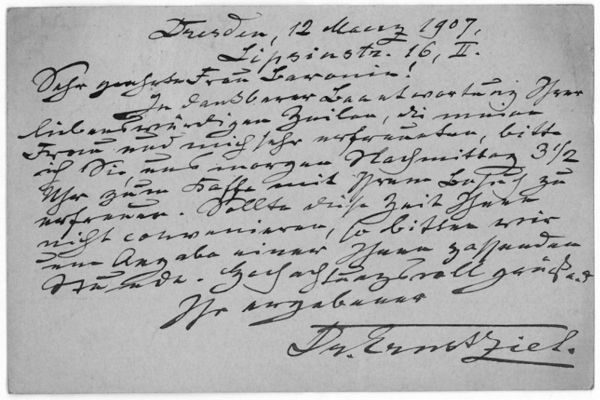 Dresden, 12 Maerz 1907.
16, II.
Sehr geehrte Frau Baronin!
In dankbarer Beantwortung Ihrer
liebenswürdigen Zeilen, die meine
Frau und mich sehr erfreueten, bitte
ich Sie, uns morgen Nachmittag 3 1/2
Uhr zum Kaffe mit Ihrem Besuch zu
erfreuen. Sollte diese Zeit Ihnen
nicht convenieren, so bitten wir
um Angabe einer Ihnen passenden
Stunde. Hochachtungsvoll grüßend
Ihr ergebener
Dr. Ernst Ziel.